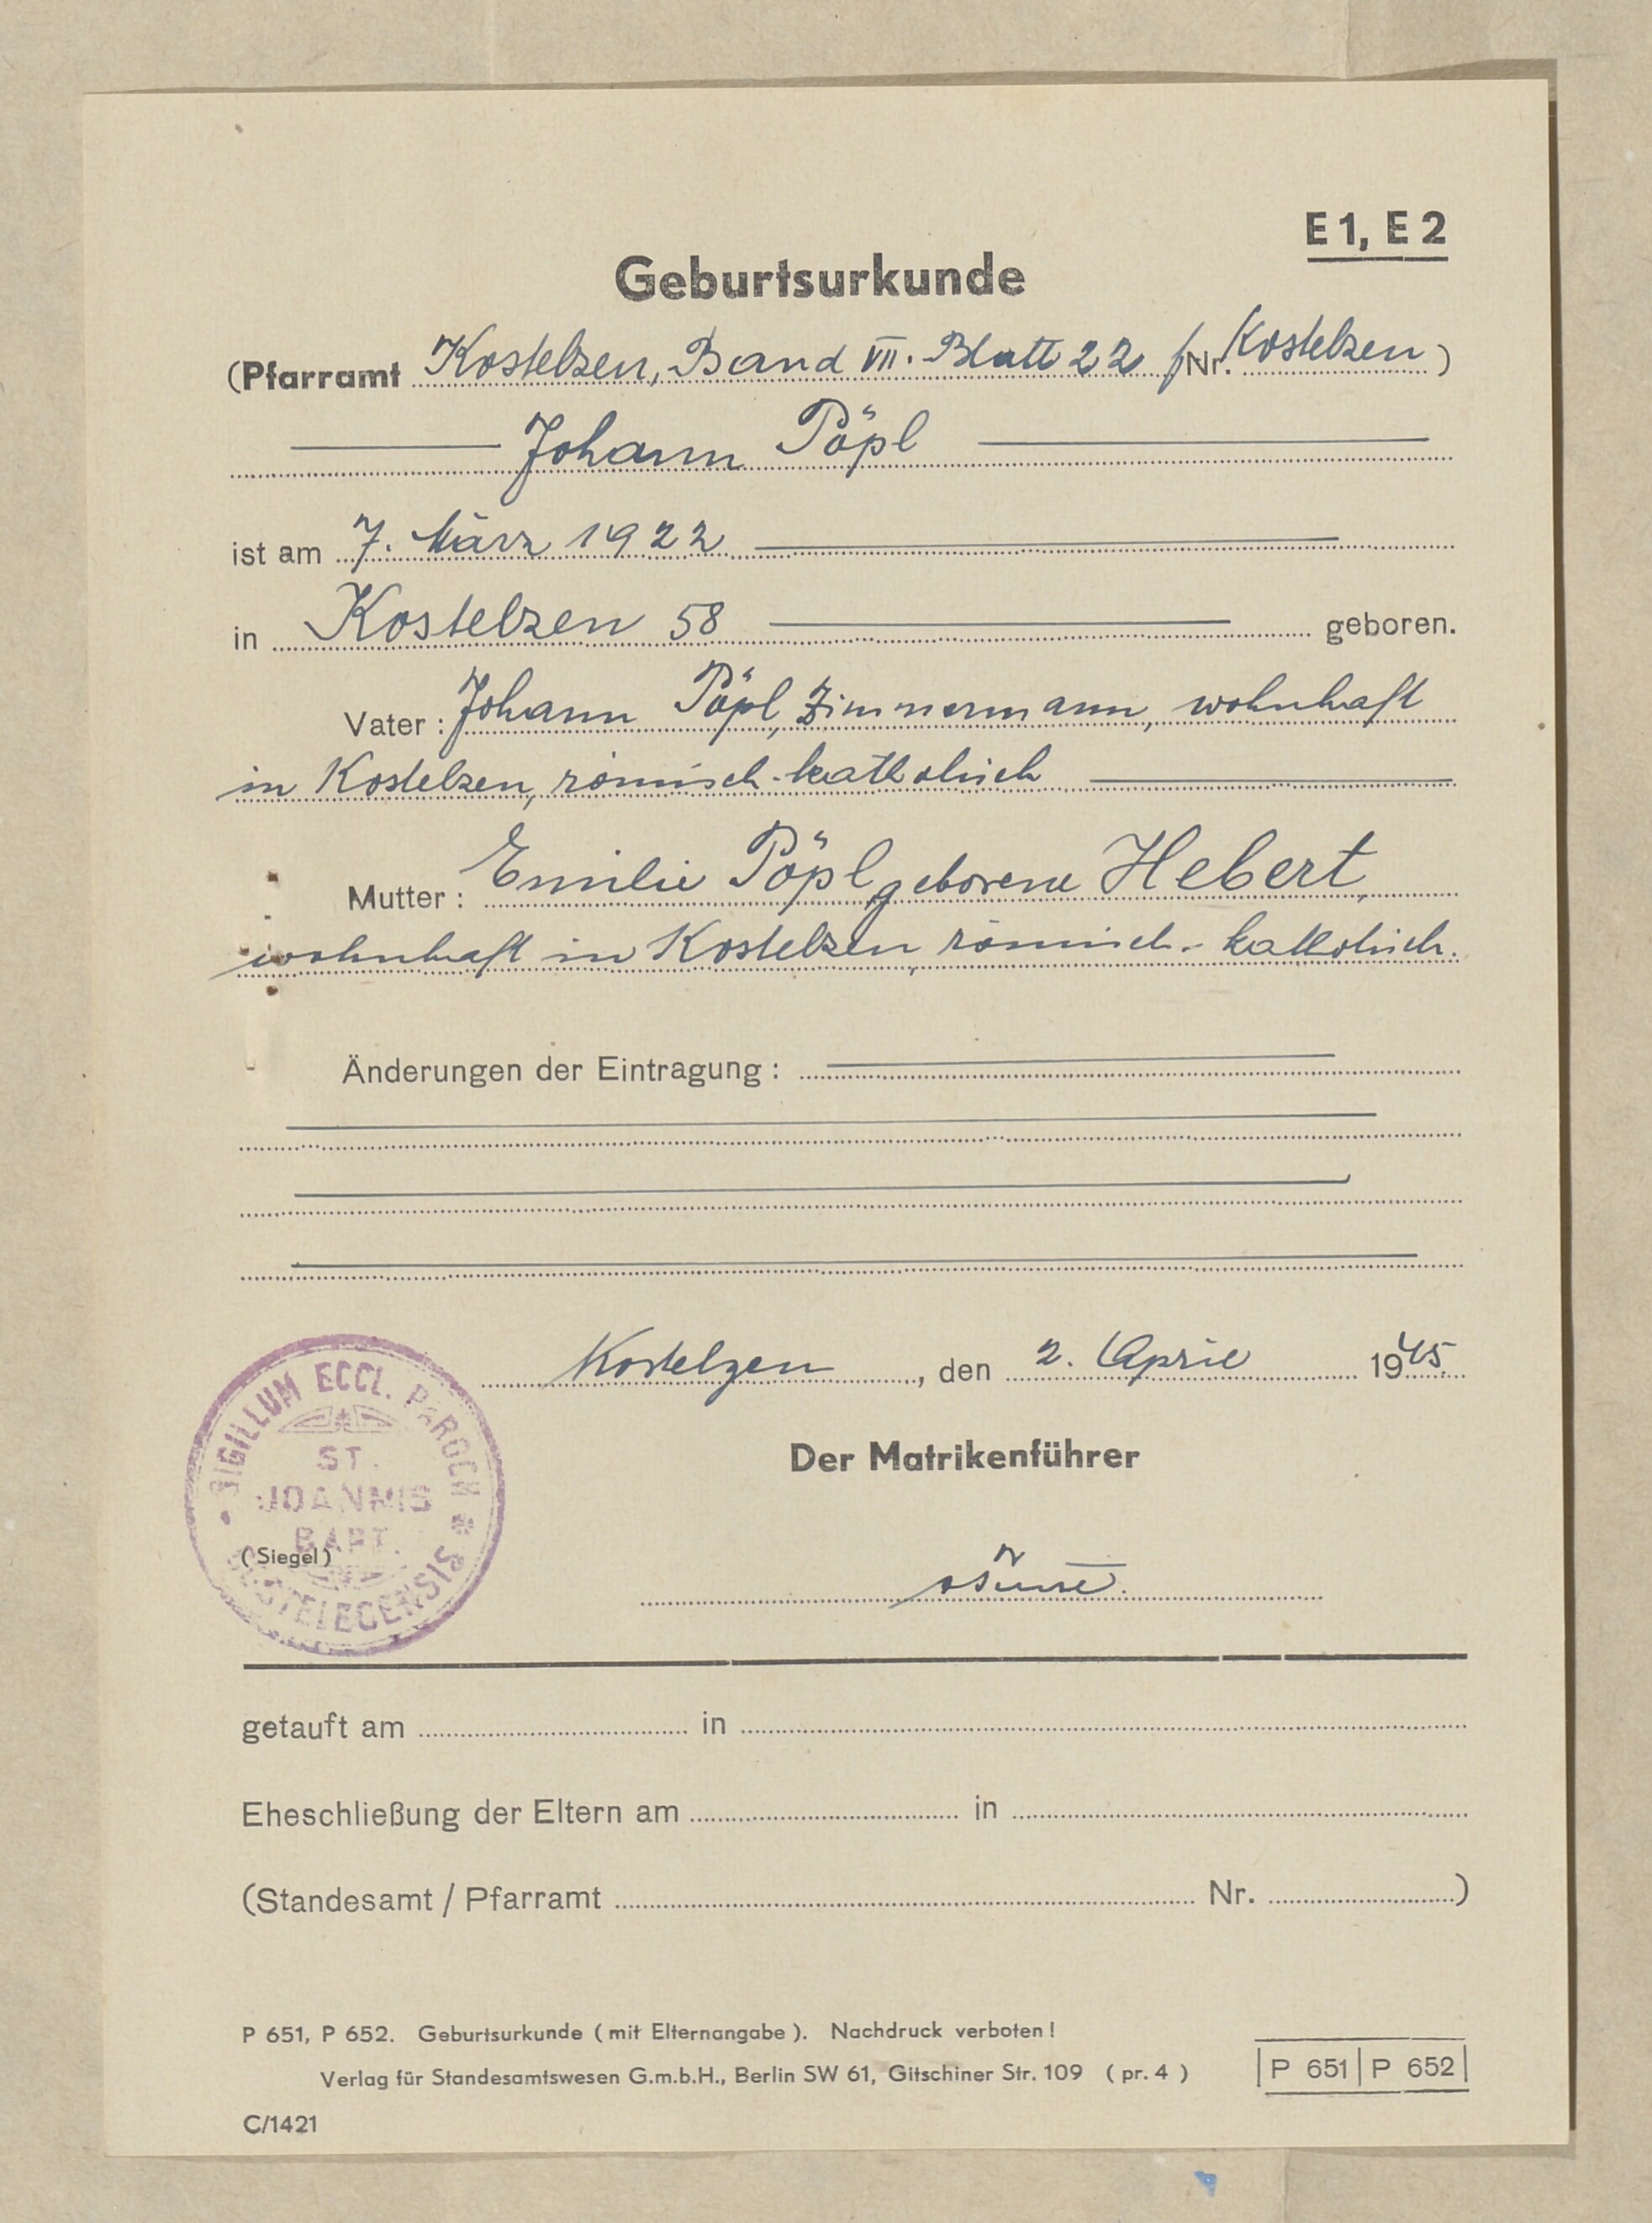 E 1, E 2
Geburtsurkunde
(Pfarramt Kostelzen, Band VII. Blatt 22 f Nr. Kostelzen )
Johann Pöpl
ist am 7. März 1922
in Kostelzen 58 geboren.
Vater : Johann Pöpl, Zimmermann, wohnhaft
in Kostelzen, römisch-katholisch
Mutter : Emilie Pöpl geborene Hebert,
wohnhaft in Kostelzen, römisch-katholisch.
Änderungen der Eintragung :
Kostelzen , den 2. April 1945.
Der Matrikenführer
SIGILLUM ECCL. PAROCH
ST.
JOANNIS
BAPT.
(Siegel)
getauft am in
Eheschließung der Eltern am in
(Standesamt / Pfarramt Nr. )
P 651, P 652. Geburtsurkunde (mit Elternangabe). Nachdruck verboten!
Verlag für Standesamtswesen G.m.b.H., Berlin SW 61, Gitschiner Str. 109 (pr. 4)
P 651 P 652
C/1421